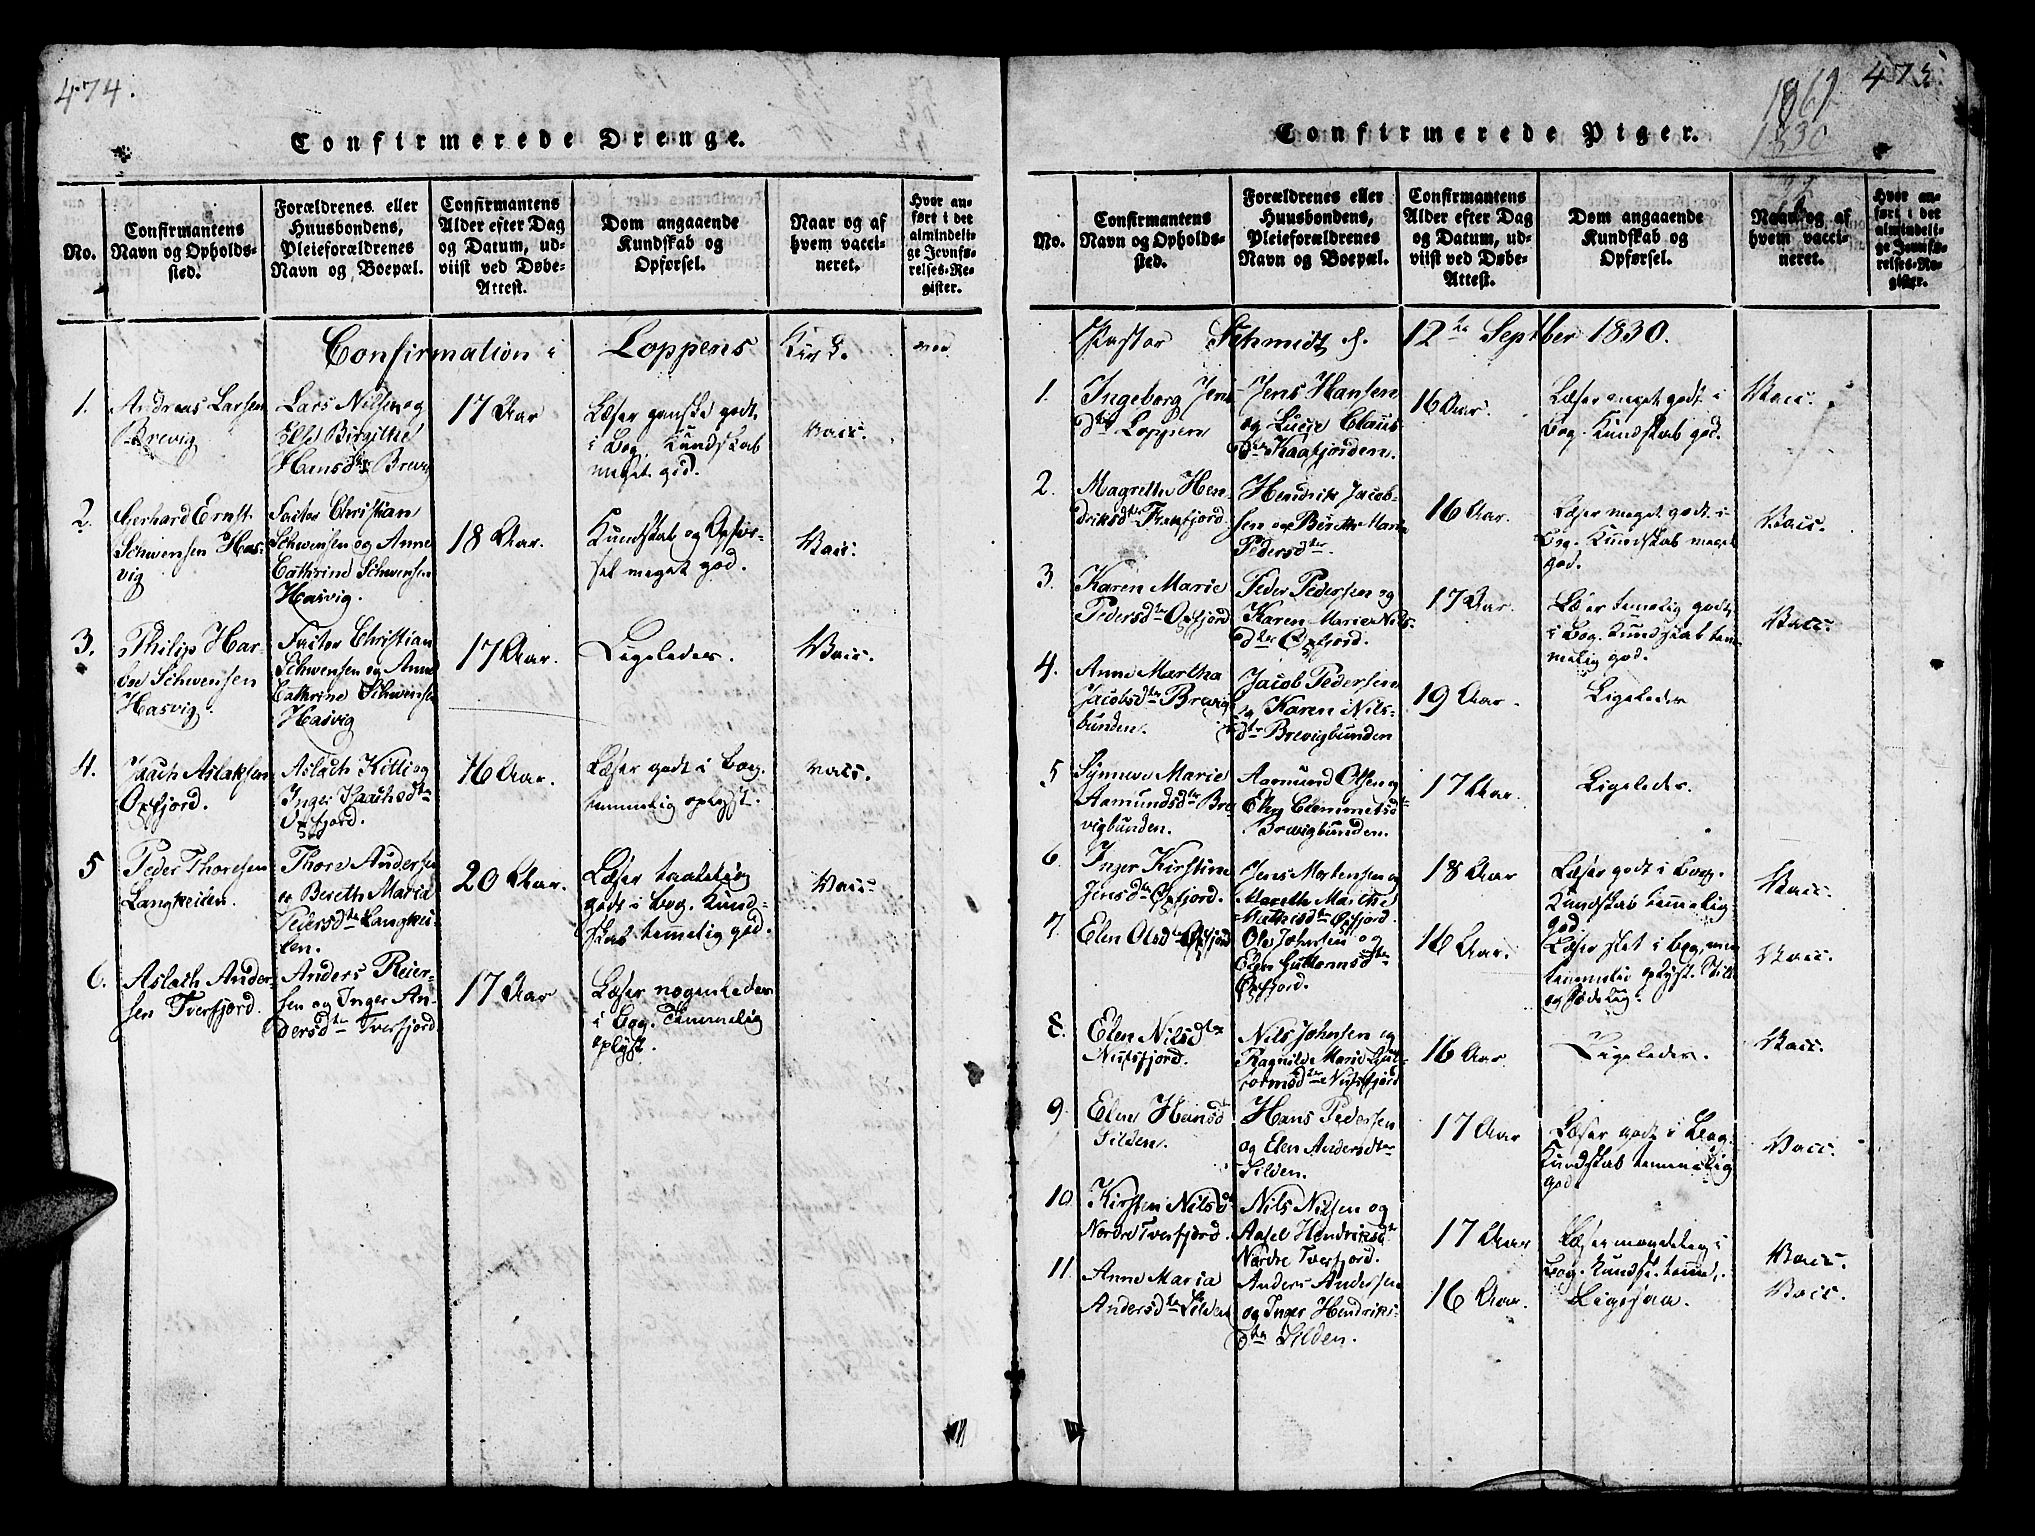 474.
Confirmerede Drenge.
No.
Confirmantens Navn og Opholds-sted.
Forældrenes eller Huusbondens, Pleieforældrenes Navn og Boepæl.
Confirmantens Alder efter Dag og Datum, ud-viist ved Døbe-Attest.
Dom angaaende Kundskab og Opførsel.
Naar og af hvem vacci-neret.
Hvor an-ført i det almindeli-ge Jevnfø-relses-Re-gister.
Confirmation i Loppens Kirk. ved
1. Andreas Larsen
Brevig
Lars Nilsen og
Else Birgitthe
Hansdtr Brevig
17 Aar
Læser ganske godt
i Bog. Kundskab
meget god.
Vacc.
2. Gerhard Ernst
Schwensen Has-
vig
Factor Christian
Schwensen og Anne
Cathrine Schwensen
Hasvig.
18 Aar.
Kundskab og Opfør-
sel meget god.
Vacc.
3. Philip Har-
Schwensen
Hasvig.
Factor Christian
Schwensen og Anne
Cathrine Schwensen
Hasvig
17 Aar.
Ligeledes.
Vacc.
4. Aslaksen
Oxfjord.
Aslach Kitti og
Inger
Oxfjord.
16 Aar.
Læser godt i Bog.
temmelig oplyst.
vacc.
5 Peder Thoresen
Langkeilen.
Thore Andersen
Bereth Maria
Pedersdtr Langkei-
len.
20 Aar.
Læser taalelig
godt i Bog. Kund-
skab temelig god.
Vacc.
6. Aslach Ander-
sen Tverfjord.
Anders Reier-
sen og Inger An-
dersdtr Tverfjord
17 Aar
Læser nogenledes
i Bog. Temmelig
oplyst.
475.
1861
1830
Confirmerede Piger.
No.
Confirmantens Navn og Opholds-sted.
Forældrenes eller Huusbondens, Pleieforældrenes Navn og Boepæl.
Confirmantens Alder efter Dag og Datum, ud-viist ved Døbe-Attest.
Dom angaaende Kundskab og Opførsel.
Naar og af hvem vacci-neret.
Hvor an-ført i det almindeli-ge Jevnfø-relses-Re-gister.
Pastor Schmidt d. 12te September 1830.
1. Ingeborg Jens
dtr Loppen
Jens Hansen
og Lucie Claus
dtr Kaafjorden.
16 Aar.
Læser meget godt i
Bog. Kundskab god.
Vacc.
2. Magrethe Hen-
driksdtr
Hendrik Jacob-
sen og Berethe Marie
Pedersdtr.
16 Aar.
Læser meget godt i
Bog. Kundskab meget
god.
Vacc.
3. Karen Marie
Pedersdtr Oxfjord
Peder Pedersen og
Karen Marie Nils-
dtr Oxfjord.
17 Aar.
Læser temelig godt
i Bog. Kundskab tem-
melig god.
Vacc.
4. Anne Martha
Jacobsdtr Brevig
bunden.
Jacob Pedersen
og Karen Nils-
dtr Brevigbunden
19 Aar.
Ligeledes
5 Synneve Marie
Aamundsdtr Bre
vigbunden.
Aamund Olsen og
Clemmetsdtr
Brevigbunden.
17 Aar.
Ligeledes.
6. Inger Kirstine
Jensdtr Oxfjord.
Jens Mortensen og
Marethe
Mathisdtr Oxfjord
18 Aar
Læser godt i Bog.
Kundskab temmelig
god.
Vacc.
7. Elen Olsdtr Oxfjord
Ole Johnsen og
Elen Guttormsdtr
Oxfjord.
16 Aar.
Læser slet i Bog, men
temmelig oplyst. Stille
og sædelig.
Vacc.
8. Elen Nilsdtr
Nusfjord.
Nils Johnsen og
Ragnild Marie Gut-
tormsdtr Nusfjord
16 Aar
Ligeledes.
Vacc.
9. Elen Hansd
Silden.
Hans Pedersen
og Elen Andersdtr
Silden.
17 Aar
Læser godt i Bog.
Kundskab temmelig
god.
Vacc.
10. Kirsten Nilsd
Nordre Tverfjord.
Nils Nilsen og
Aasel Hendriksdtr
Nordre Tverfjord.
17 Aar
Læser maadelig i
Bog. Kundsk. temmel.
Vacc.
11. Anne Maria
Andersdtr Silden
Anders Andersen
og Inger Hendriks-
dtr Silden.
16 Aar.
Ligesaa.
Vacc.